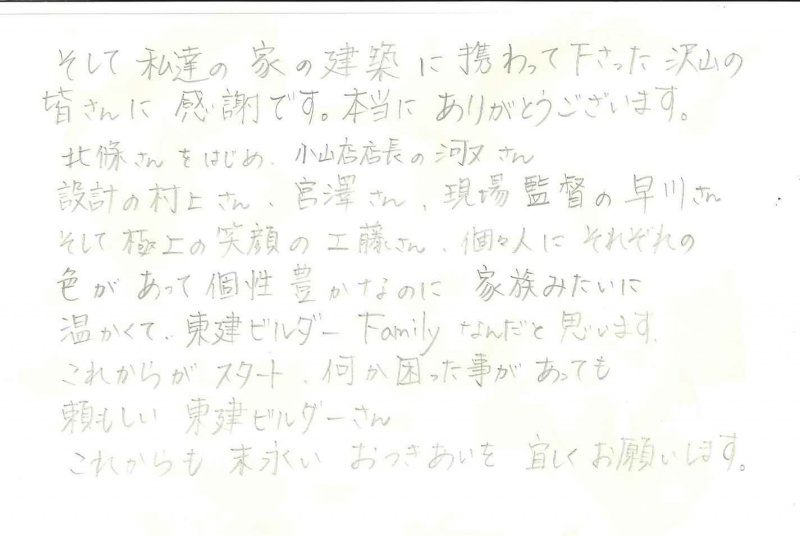 そして 私達の 家の建築に携わって下さった沢山の
皆さんに 感謝です。本当に ありがとうございます。
北條さんをはじめ、小山店店長の河又さん
設計の村上さん、宮澤さん、現場監督の早川さん
そして極上の笑顔の工藤さん、個々人に それぞれの
色が あって個性豊かなのに 家族みたいに
温かくて、東建ビルダー Family なんだと思います。
これからが スタート、何か困った事が あっても
頼もしい 東建ビルダーさん
これからも 末永い おつきあいを 宜しくお願いします。